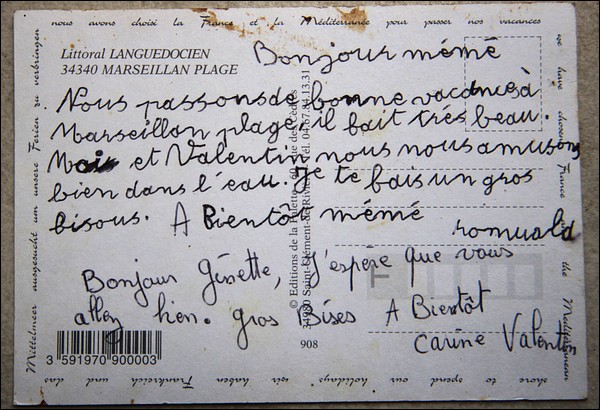 nous avons choisi la France et la Méditerranée pour passer nos vacances
Littoral LANGUEDOCIEN
34340 MARSEILLAN PLAGE
Bonjour mémé
Nous passons de bonne vacances à
Marseillan plage il fait très beau.
Moi et Valentin nous nous amusons
bien dans l'eau. Je te fais un gros
bisous. A Bientôt mémé
romuald
Bonjour Ginette, J'espère que vous
allez bien. Gros Bises A Bientôt
Carine Valentin
3 591970 900003
908
© Editions de la
34980 Saint-Clément-de-Rivière Tél. 04.67.84.13.31
F
Mittelmeer ausgesucht um unsere Ferien zu verbringen
we have choosen France and the Mediterranean
shore to spend our "holidays" wir haben Frankreich und das